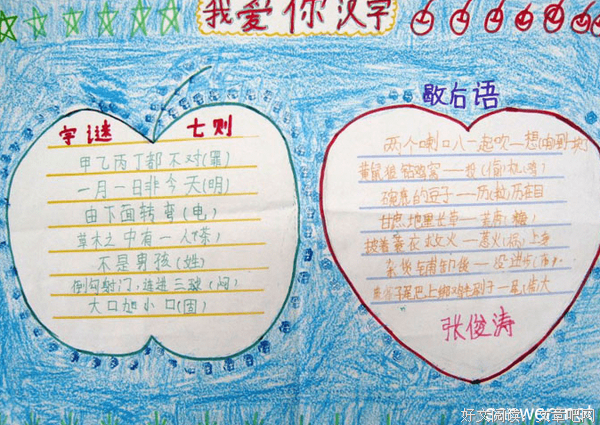 我爱你汉字
字谜 七则
甲乙丙丁都不对(罪)
一月一日非今天(明)
由下面转弯(电)
草木之中有一人(茶)
不是男孩(姓)
倒勾射门,连进三球(闷)
大口加小口(回)
歇后语
两个喇叭一起吹——想(响)到一块
黄鼠狼钻鸡窝——投(偷)机(鸡)
碗里的豆子——历(粒)历在目
甘蔗地里长草——荒唐(糖)
披着蓑衣救火——惹火(祸)上身
张俊涛
好文阅读,文章吧网